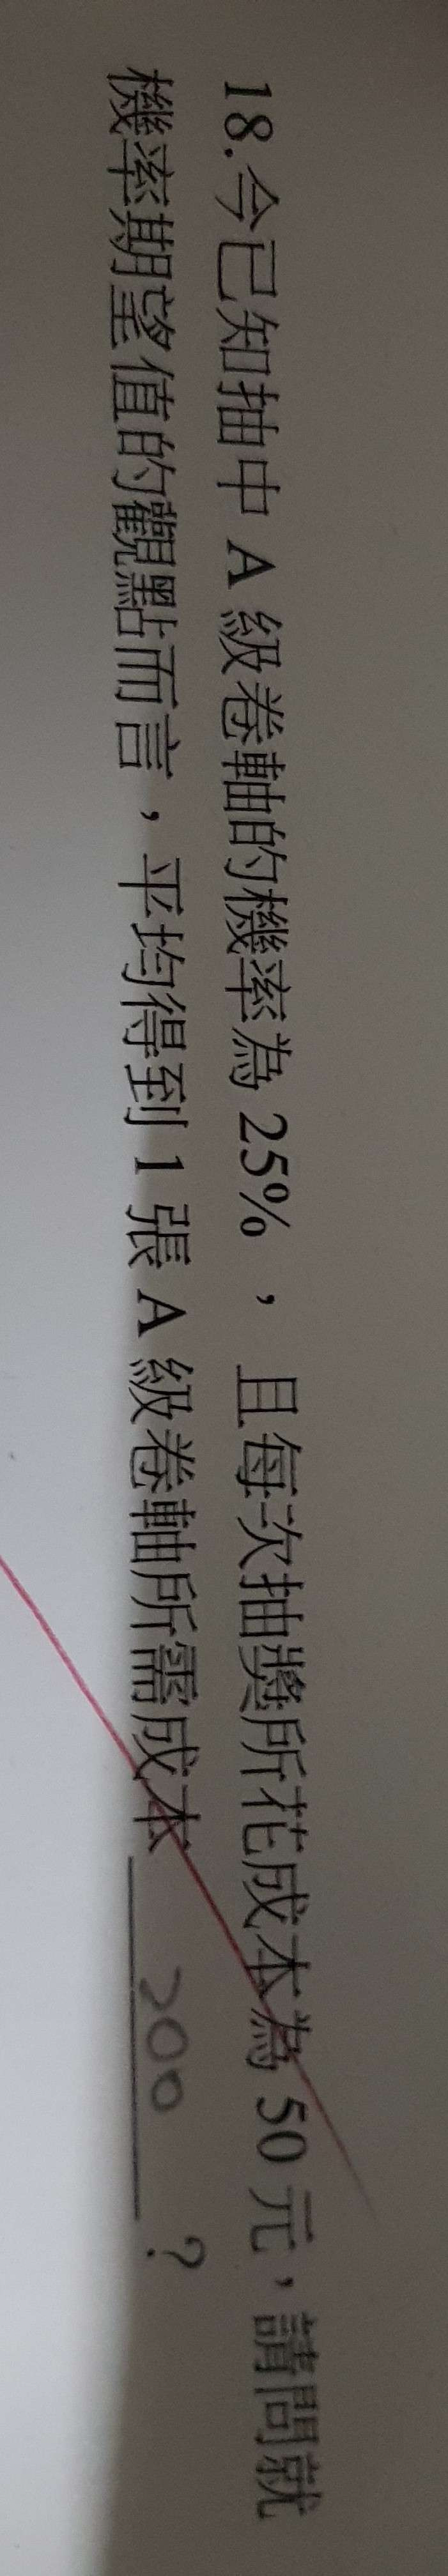 18.今已知抽中 A 級卷軸的機率為 25%，且每次抽獎所花成本為 50 元，請問就
機率期望值的觀點而言，平均得到 1 張 A 級卷軸所需成本 200 ?